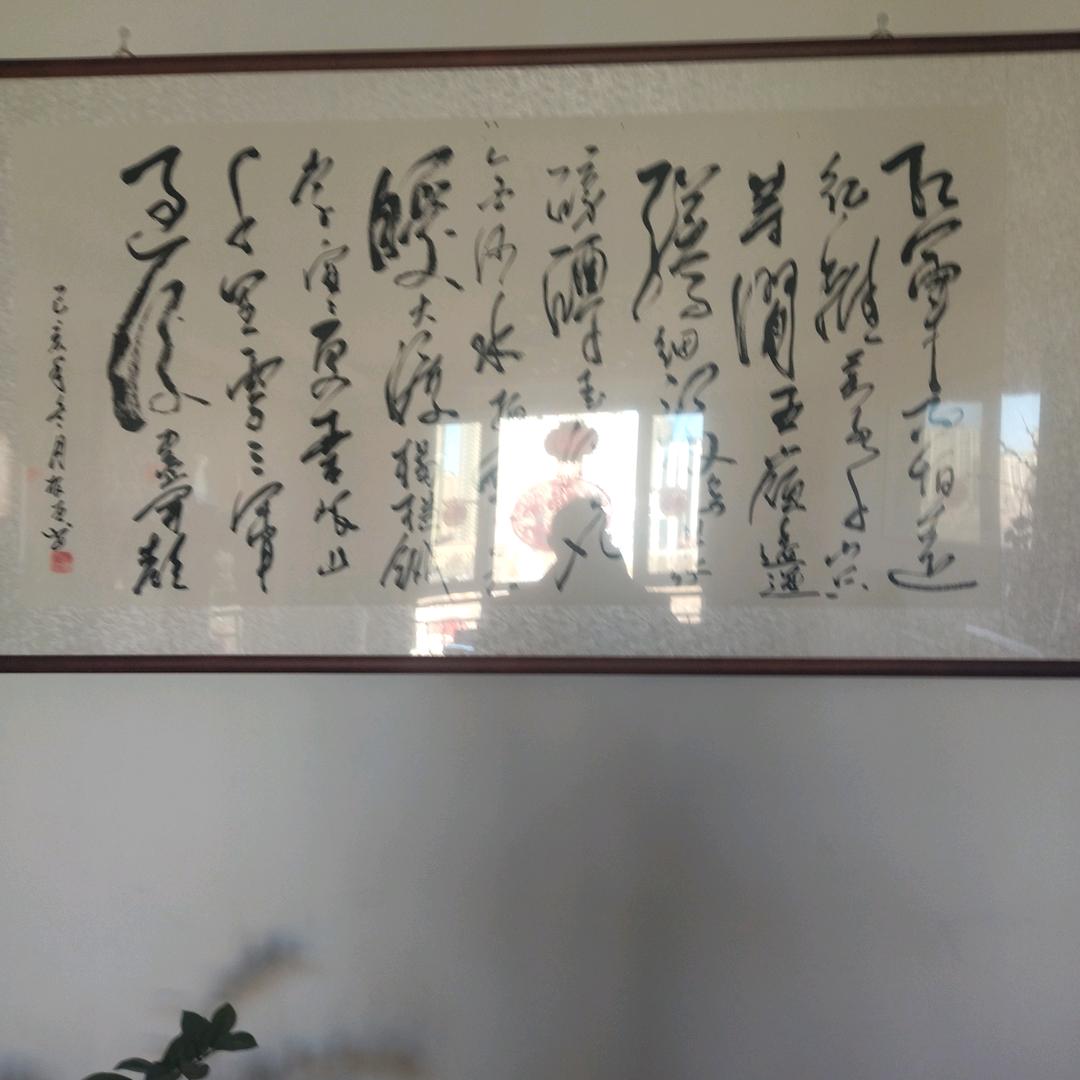 红軍不怕遠
征難萬水千山只
等闲五嶺逶迤
騰細浪
磅礴走泥丸
金沙水拍雲崖
暖大渡橋横鐵
索寒更喜岷山
千里雪三軍
過後盡開顏
己亥年六月